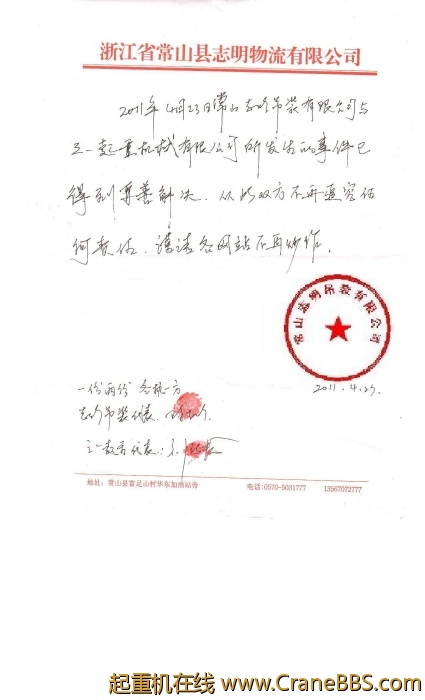 浙江省常山县志明物流有限公司
2011年4月23日常山志明吊装有限公司与
三一起重机械有限公司所发生的事件已
得到妥善解决。从此双方不再追究任
何责任。谨请各网站不再炒作。
常山志明吊装有限公司
2011.4.27.
一份两份 各执一方
志明吊装代表：
三一起重代表：
地址：常山县富足山村华东加油站旁 电话：0570-5031777 13567072777
起重机在线 www.CraneBBS.com